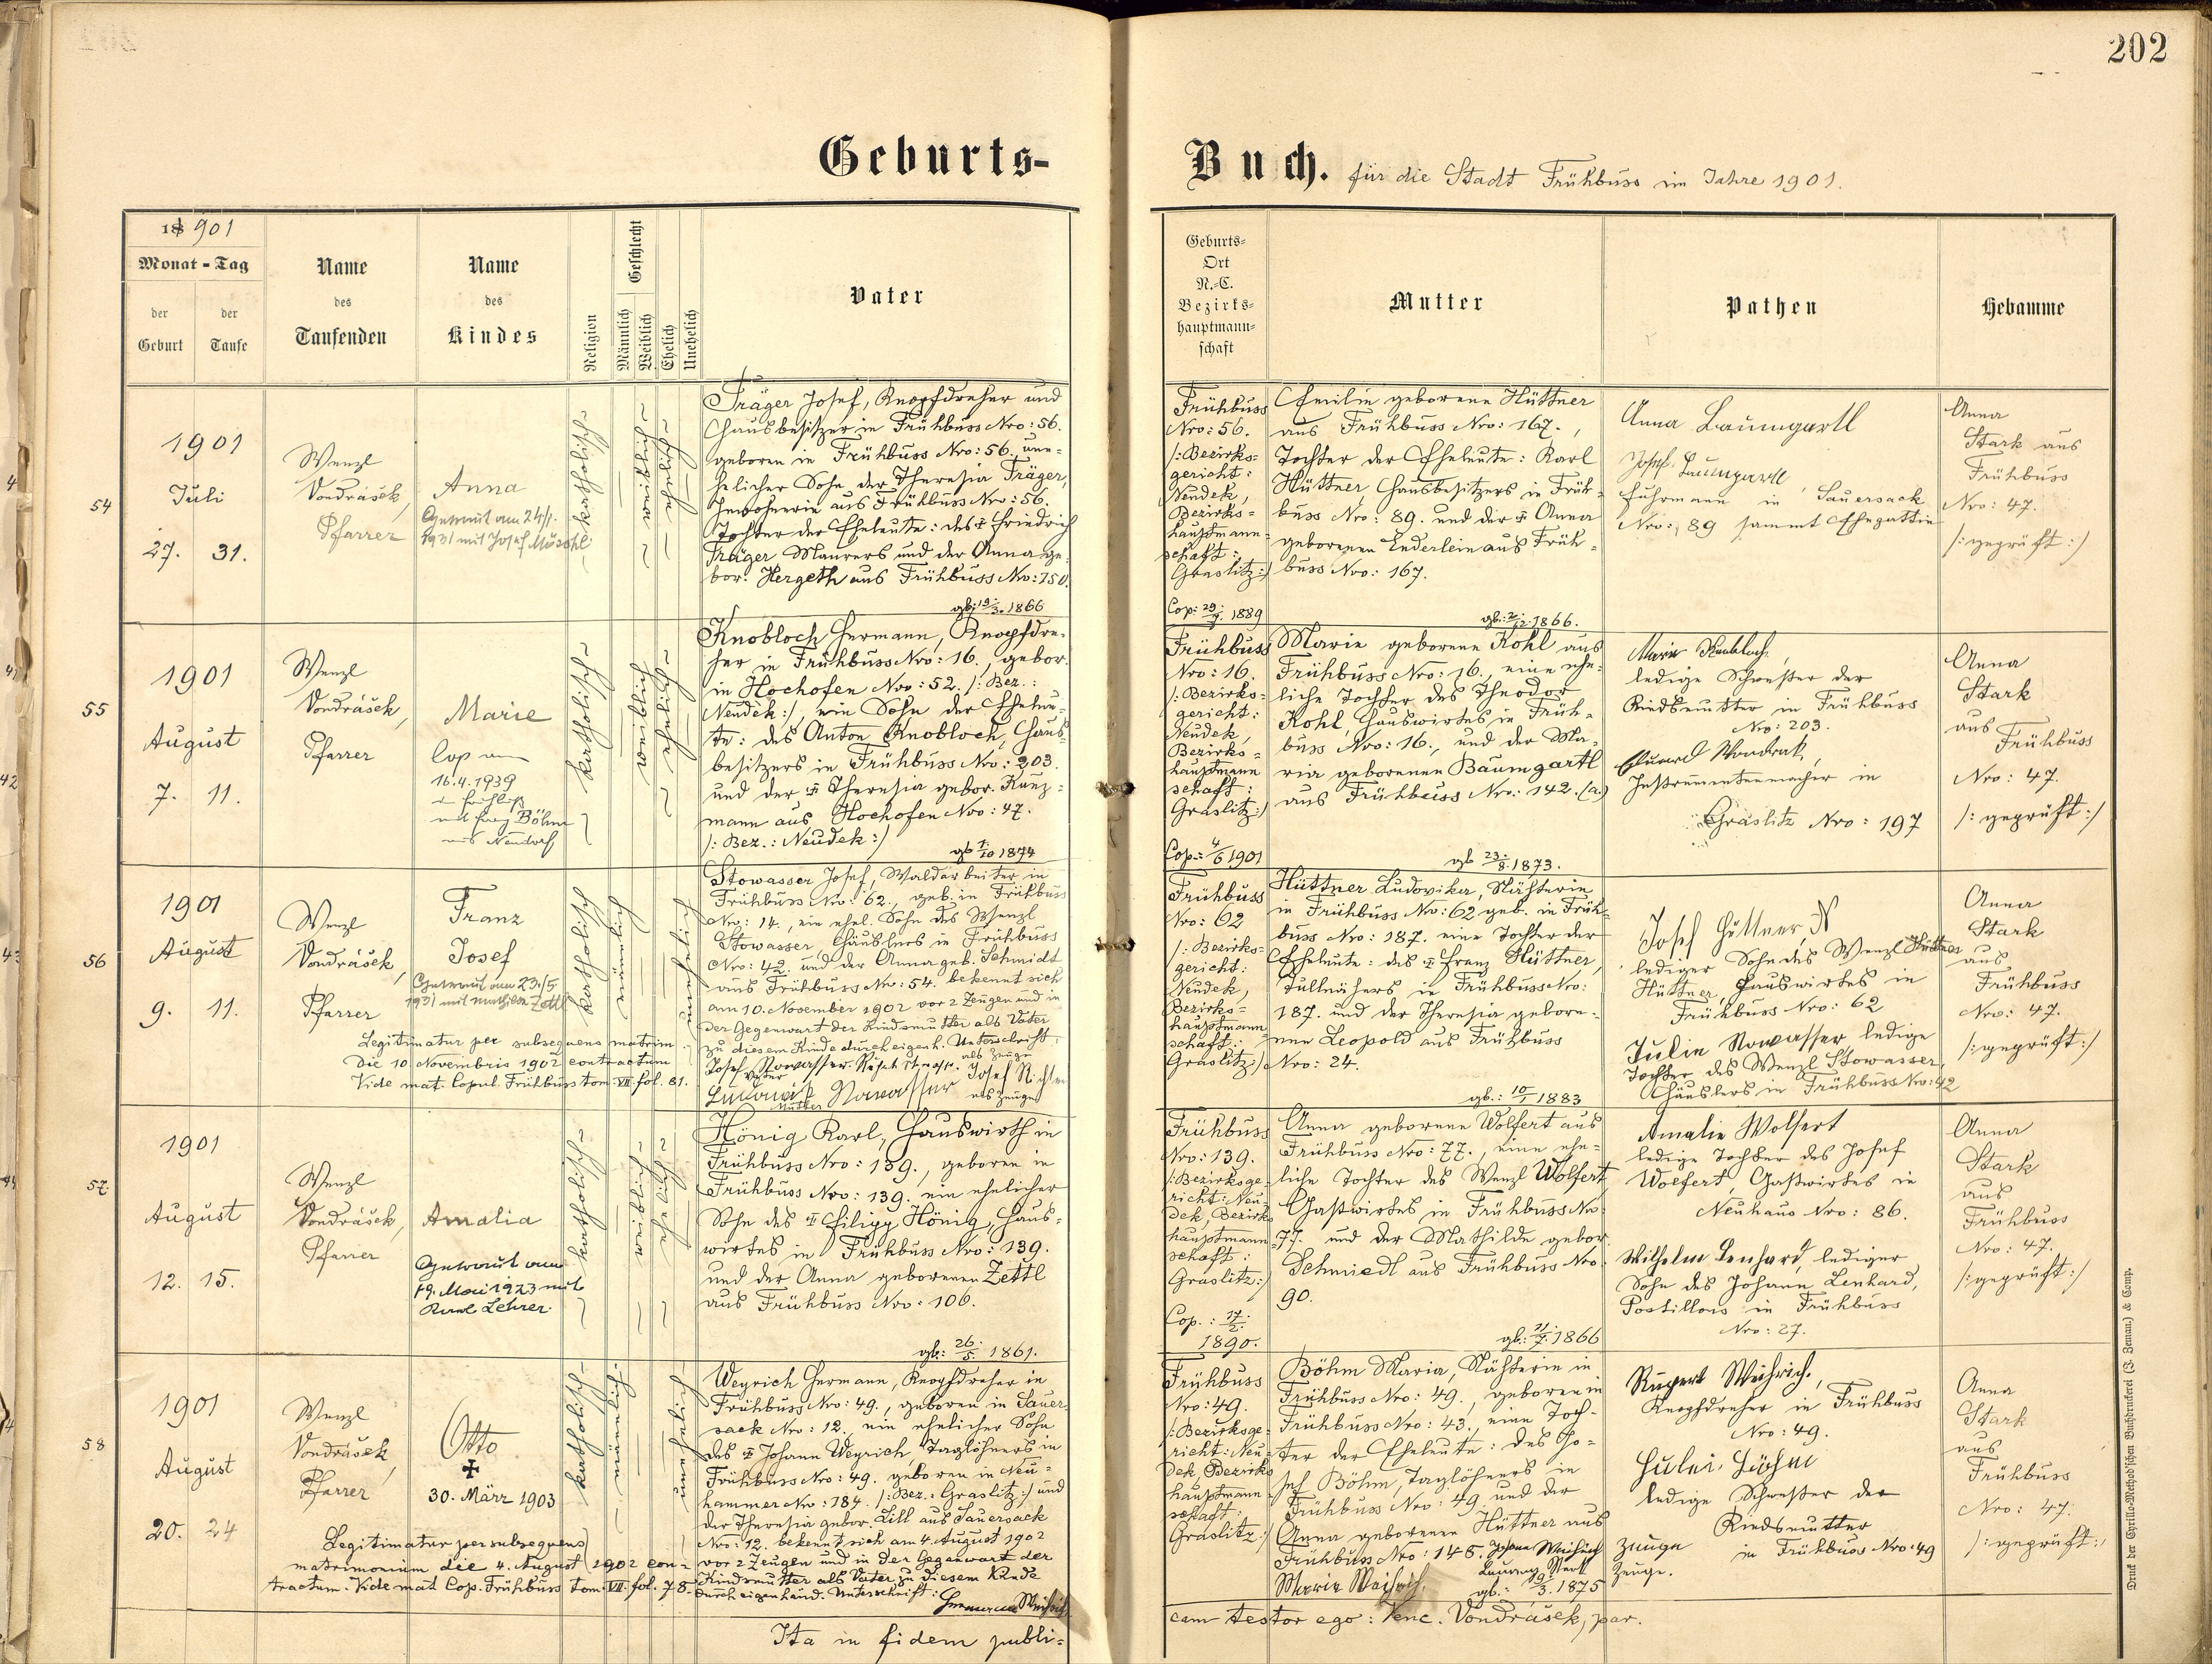 202
Geburts-
Buch. für die Stadt Frühbuss im Jahre 1901.
18 901
Monat - Tag
der Geburt
der Taufe
Name des Taufenden
Name des Kindes
Religion
Geschlecht
Männlich
Weiblich
Ehelich
Unehelich
Vater
Geburts-
Ort
N.-C.
Bezirks-
hauptmann-
schaft
Mutter
Pathen
Hebamme
54
1901
Juli
27. 31.
Wenzl
Vondrášek,
Pfarrer
Anna
Getraut am 24/1.
1931 mit Josef
katholisch
Träger Josef, Knopfdreher und
Hausbesitzer in Frühbuss Nro: 56.
geboren in Frühbuss Nro: 56. une-
helicher Sohn der Theresia Träger,
Inwohnerin aus Frühbuss Nro: 56.
Tochter der Eheleute: des † Friedrich
Träger Maurers und der Anna ge-
bor. Hergeth aus Frühbuss Nro: 150.
gb: 19./3. 1866
Frühbuss
Nro: 56.
/: Bezirks-
gericht:
Neudek,
Bezirks-
hauptmann-
schaft:
Graslitz:/
Cop: 1889
Emilie geborene Hüttner
aus Frühbuss Nro: 167.,
Tochter der Eheleute: Karl
Hüttner, Hausbesitzers in Früh-
buss Nro: 89. und der † Anna
geborenen Enderlein aus Früh-
buss Nro: 167.
gb.: 2./12. 1866.
Anna Baumgartl
Josef Baumgartl
Fuhrmann in Sauersack
Nro: 89 sammt Ehegattin
Anna
Stark aus
Frühbuss
Nro: 47.
/: geprüft :/
55
1901
August
7. 11.
Wenzl
Vondrášek,
Pfarrer
Marie
Cop am
16.4.1939
mit Böhm
aus Neudorf
katholisch
weiblich
ehelich
Knobloch Hermann, Knopfdre-
her in Frühbuss Nro: 16., gebor.
in Hochofen Nro: 52. /: Bez.:
Neudek:/, ein Sohn der Eheleu-
te: des Anton Knobloch, Haus-
besitzers in Frühbuss Nro: 203.
und der † Theresia gebor. Kunz-
mann aus Hochofen Nro: 47.
/: Bez.: Neudek :/
gb 1./10 1874
Frühbuss
Nro: 16.
/: Bezirks-
gericht:
Neudek,
Bezirks-
hauptmann
schaft:
Graslitz:/
Cop.: 4/6 1901
Marie geborene Kohl aus
Frühbuss Nro: 16., eine ehe-
liche Tochter des Theodor
Kohl, Hauswirtes in Früh-
buss Nro: 16., und der Ma-
ria geborenen Baumgartl
aus Frühbuss Nro: 142. (a.)
gb 23./8. 1873.
Marie Knobloch,
ledige Schwester der
Kindsmutter in Frühbuss
Nro: 203.
Eduard Wondrak,
Instrumentenmacher in
Graslitz Nro: 197
Anna
Stark
aus
Frühbuss
Nro: 47.
/: geprüft :/
56
1901
August
9. 11.
Wenzl
Vondrášek,
Pfarrer
Franz
Josef
Getraut am 23./5
1931 mit Mathilde Zettl
katholisch
männlich
unehelich
Legitimatur per subsequens matrim.
die 10 Novembris 1902 contractum
Vide mat. Copul. Frühbuss tom. VII. fol. 81.
Stowasser Josef, Waldarbeiter in
Frühbuss Nro: 62., geb. in Frühbuss
Nro: 14., ein ehel. Sohn des Wenzl
Stowasser, Häuslers in Frühbuss
Nro: 42. und der Anna geb. Schmidt
aus Frühbuss Nro: 54. bekennt sich
am 10. November 1902 vor 2 Zeugen und in
der Gegenwart der Kindsmutter als Vater
zu diesem Kinde durch eigenh. Unterschrift:
Josef Stowasser
Vater
als Zeuge
Josef Richter
als Zeuge
Stowasser
Mutter
Frühbuss
Nro: 62
/: Bezirks-
gericht:
Neudek,
Bezirks-
hauptmann-
schaft:
Graslitz:/
Hüttner Ludovika, Nähterin
in Frühbuss Nro: 62 geb. in Früh-
buss Nro: 187. eine Tochter der
Eheleute: des † Franz Hüttner,
Tüllnähers in Frühbuss Nro:
187. und der Theresia gebore-
nen Leopold aus Frühbuss
Nro: 24.
gb.: 10/1 1883
Josef Hüttner,
lediger Sohn des Wenzl Hüttner
Hüttner, Hauswirtes in
Frühbuss Nro: 62
Julie Stowasser, ledige
Tochter des Wenzl Stowasser,
Häuslers in Frühbuss Nro: 42
Anna
Stark
aus
Frühbuss
Nro: 47.
/: geprüft :/
57.
1901
August
12. 15.
Wenzl
Vondrášek,
Pfarrer
Amalia
Getraut am
19. Mai 1923 mit
Karl Lehrer.
katholisch
weiblich
ehelich
König Karl, Hauswirth in
Frühbuss Nro: 139., geboren in
Frühbuss Nro: 139. ein ehelicher
Sohn des † Filipp König, Haus-
wirtes in Frühbuss Nro: 139.
und der Anna geborenen Zettl
aus Frühbuss Nro: 106.
gb.: 26./5. 1861.
Frühbuss
Nro: 139.
/: Bezirksge-
richt: Neu-
dek, Bezirks
hauptmann-
schaft:
Graslitz:/
Cop.: 17./2.
1890.
Anna geborene Wolfert aus
Frühbuss Nro: 77., eine ehe-
liche Tochter des Wenzl Wolfert,
Gastwirtes in Frühbuss Nro:
77. und der Mathilde gebor.
Schmiedl aus Frühbuss Nro:
90.
gb.: 1866
Amalie Wolfert
ledige Tochter des Josef
Wolfert, Gastwirtes in
Neuhaus Nro: 86.
Wilhelm Lenhard, lediger
Sohn des Johann Lenhard,
Postillons in Frühbuss
Nro: 27.
Anna
Stark
aus
Frühbuss
Nro: 47.
/: geprüft :/
58
1901
August
20. 24
Wenzl
Vondrášek,
Pfarrer
Otto
✠
30. März 1903
katholisch
männlich
unehelich
Legitimatur per subsequens
matrimonium die 4. August 1902 con-
tractum. Vide mat. Cop. Frühbuss tom. VII. fol. 78.
Weyrich Hermann, Knopfdreher in
Frühbuss Nro: 49., geboren in Sauer-
sack Nro: 12., ein ehelicher Sohn
des † Johann Weyrich Taglöhners in
Frühbuss Nro: 49. geboren in Neu-
hammer Nro: 184. /: Bez.: Graslitz:/ und
der Theresia gebor. Lill aus Sauersack
Nro: 12. bekennt sich am 4. August 1902
vor 2 Zeugen und in der Gegenwart der
Kindsmutter als Vater zu diesem Kinde
durch eigenhänd. Unterschrift: Hermann
Frühbuss
Nro: 49.
/: Bezirksge-
richt: Neu-
dek, Bezirks
hauptmann
schaft:
Graslitz:/
Böhm Maria, Nähterin in
Frühbuss Nro: 49., geboren in
Frühbuss Nro: 43., eine Toch-
ter der Eheleute: des Jo-
sef Böhm, Taglöhners in
Frühbuss Nro: 49. und der
Anna geborenen Hüttner aus
Frühbuss Nro: 145.
gb.: 1875
Rupert Weihrich,
Knopfdreher in Frühbuss
Nro: 49.
ledige Schwester der
Kindsmutter
in Frühbuss Nro: 49
Zeuge
Zeuge.
Anna
Stark
aus
Frühbuss
Nro: 47.
/: geprüft :/
Ita in fidem publi-
cam testor ego: Venc. Vondrášek, par.
Druck der Cyrillo-Method'schen Buchdruckerei (J. Zeman) & Comp.